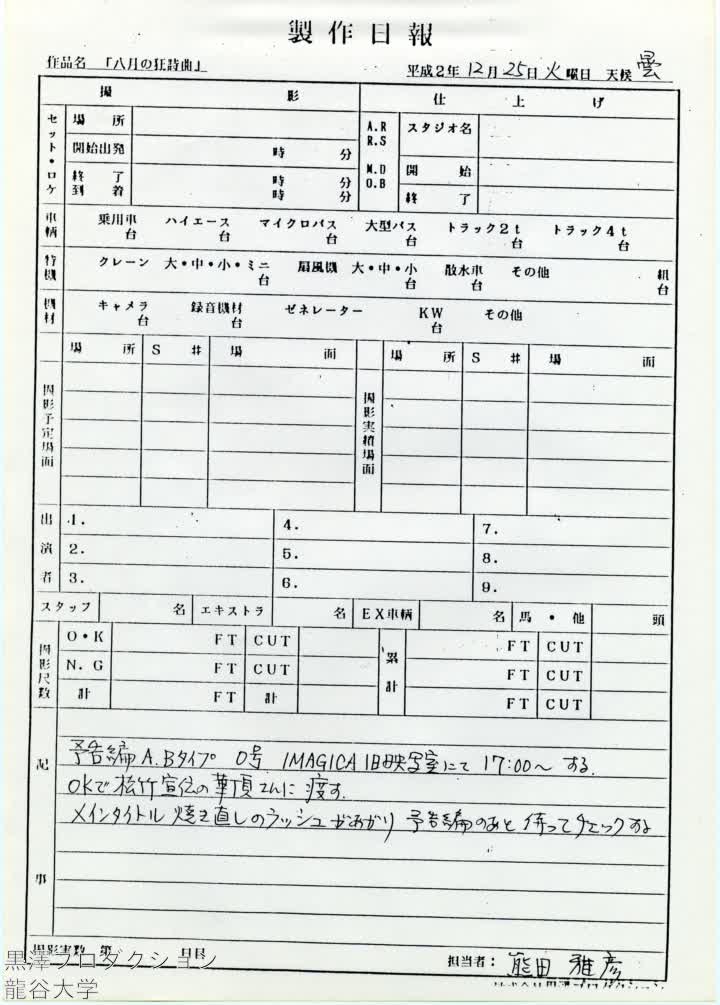 製作日報
作品名 「八月の狂詩曲」
平成2年 12月 25日 火 曜日 天候 曇
撮 影
仕 上 げ
セット・ロケ
場 所
開始出発 時 分
終 了 時 分
到 着 時 分
A.R
R.S
M.D
O.B
スタジオ名
開 始
終 了
車輌
乗用車 台 ハイエース 台 マイクロバス 台 大型バス 台 トラック2t 台 トラック4t 台
特機
クレーン 大・中・小・ミニ 台 扇風機 大・中・小 台 散水車 台 その他 組 台
機材
キャメラ 台 録音機材 台 ゼネレーター KW 台 その他
場 所 S # 場 面
場 所 S # 場 面
影予定場面
影実績場面
出演者
1. 4. 7.
2. 5. 8.
3. 6. 9.
スタッフ 名 エキストラ 名 EX車輌 名 馬・他 頭
影尺数
O・K FT CUT
N.G FT CUT
計 FT 計
累計
FT CUT
FT CUT
FT CUT
記事
予告編 A.Bタイプ 0号 IMAGICA 旧映写室にて 17:00〜 する.
OKで 松竹宣伝の 華頂さんに 渡す.
メインタイトル 焼き直しのラッシュがあがり 予告編のあと 待ってチェックする
撮影実数 第 日目
担当者： 熊田 雅彦
黒澤プロダクション
龍谷大学